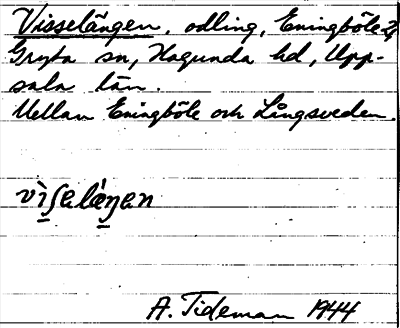 Visselängen, odling, Eningböle 2,
Gryta sn, Hagunda hd, Upp-
sala län.
Mellan Eningböle och Långsveden.
A. Tideman 1944